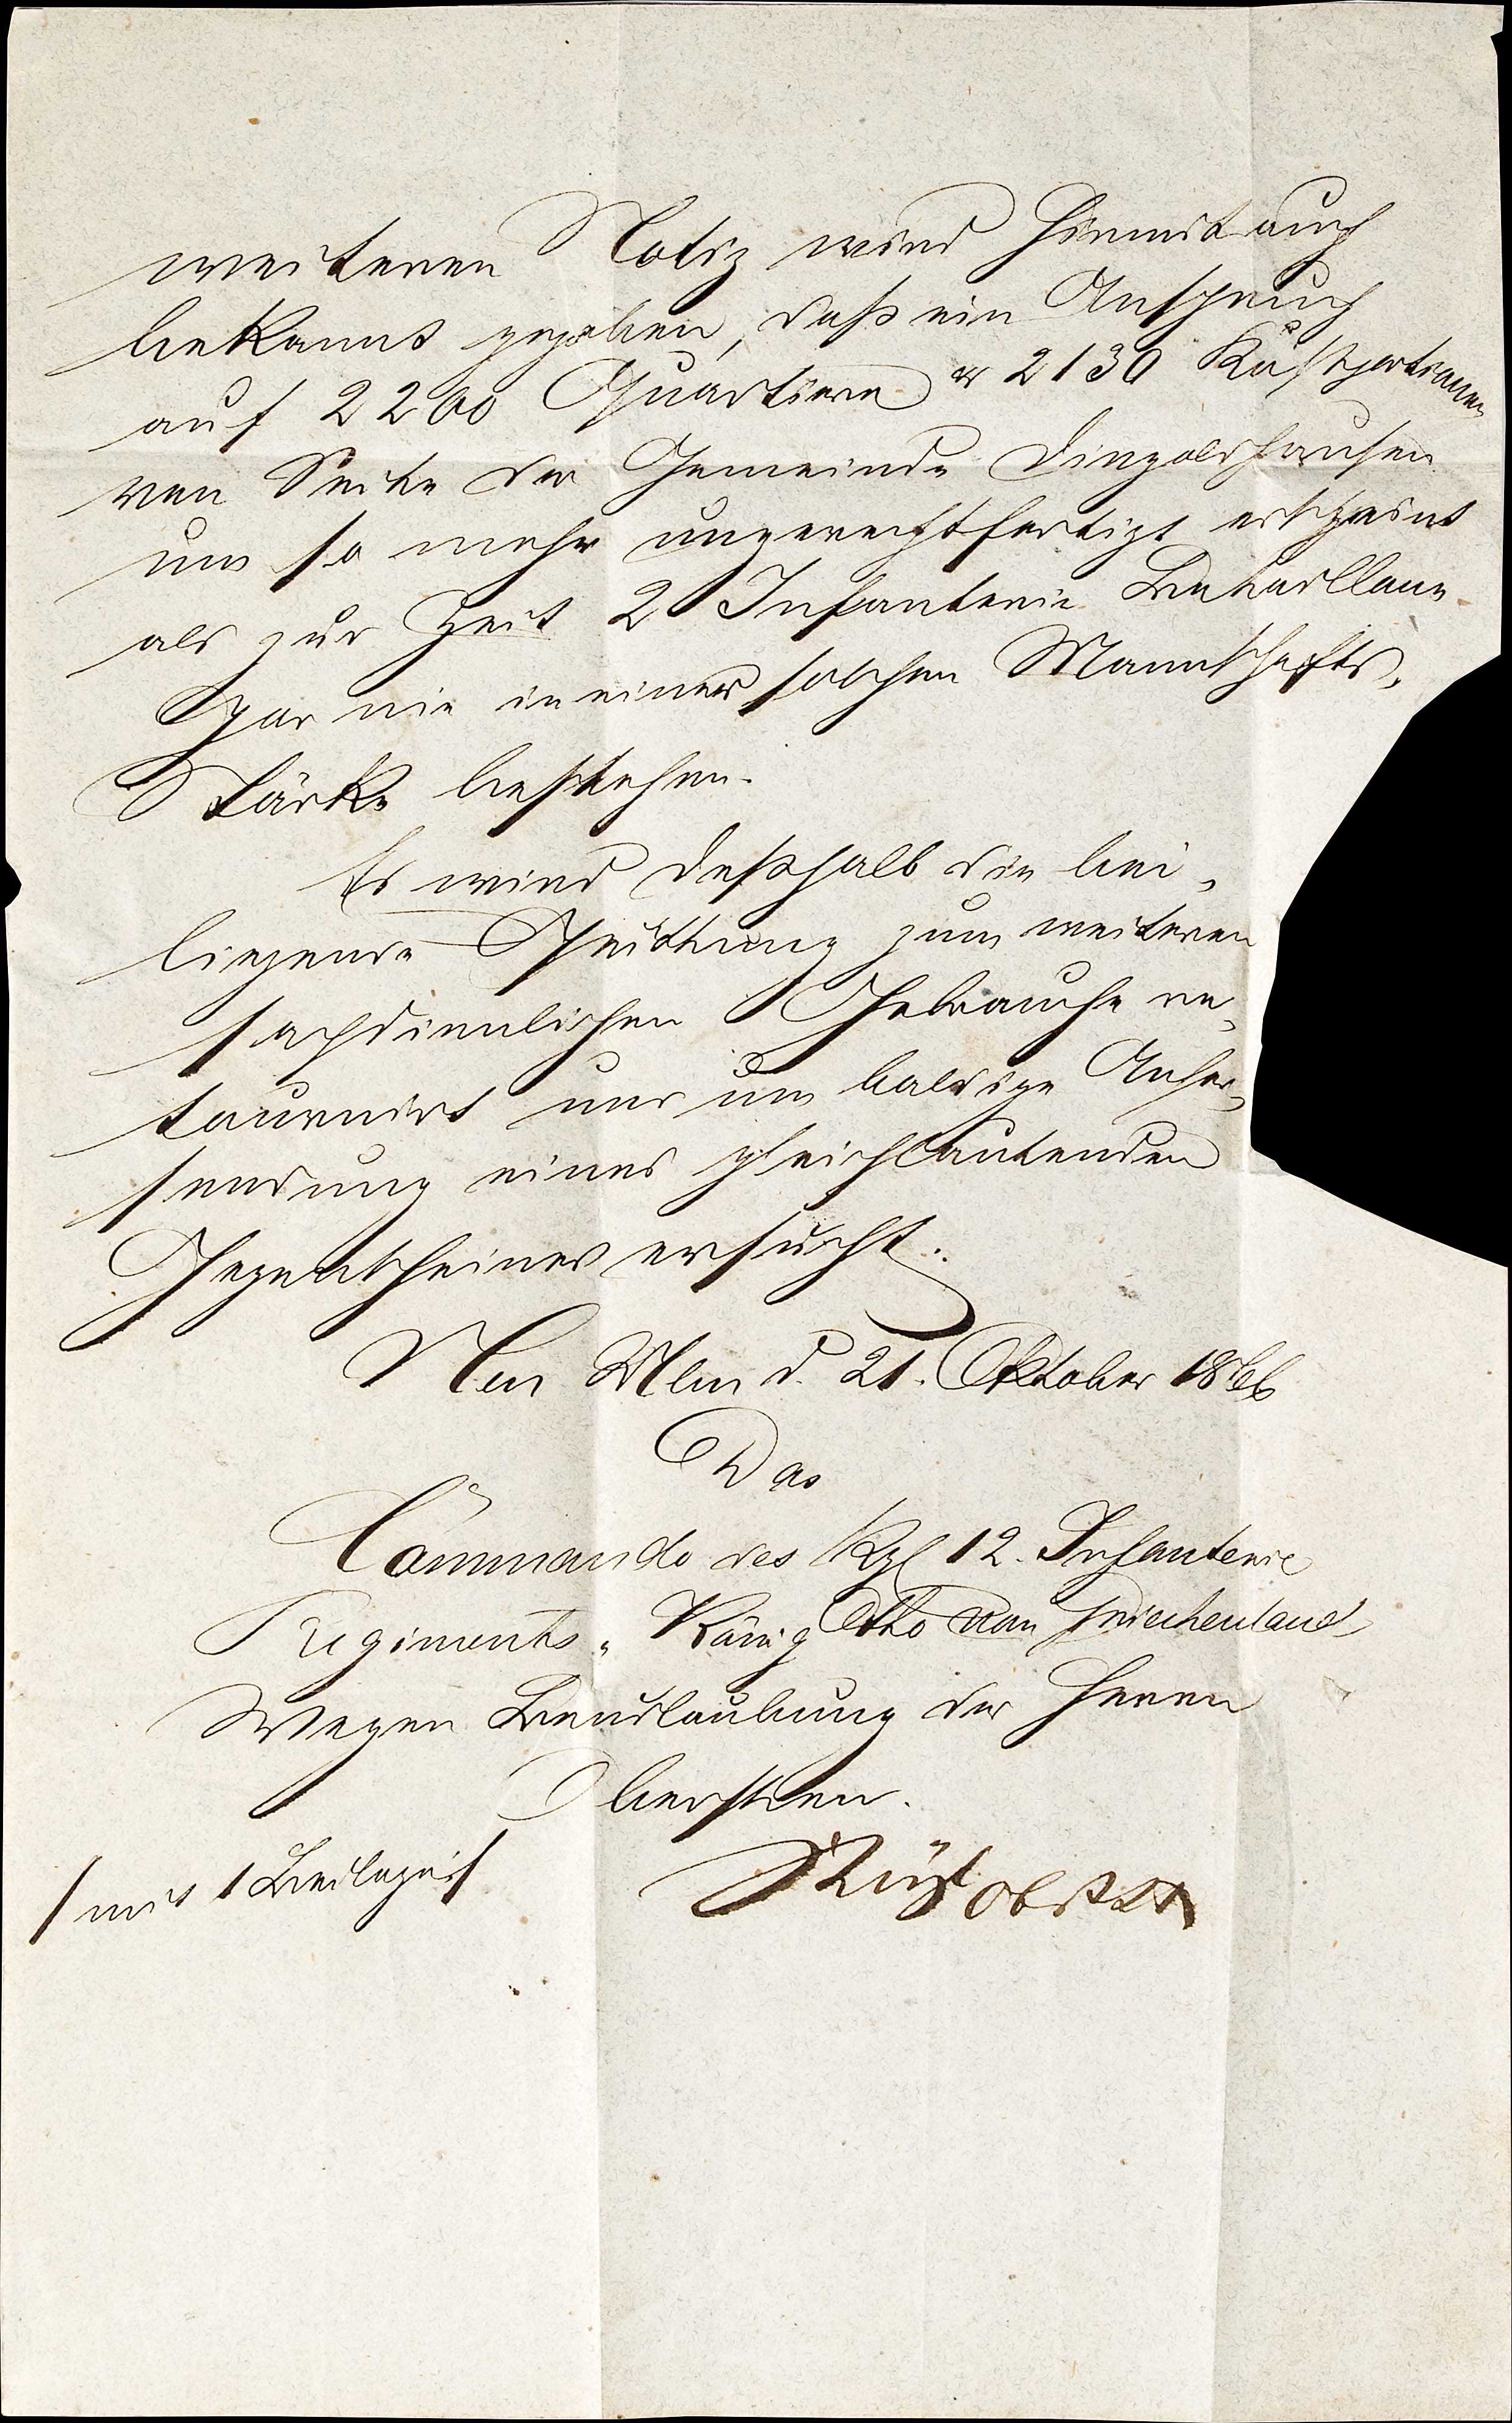 weiteren Notiz wird hiemit auch
bekannt gegeben, daß ein Anspruch
auf 2260 Quartiere & 2130 Kostportionen
von Seite der Gemeinde Dingolshausen
um so mehr ungerechtfertigt erscheint
als zur Zeit 2 Infanterie Bataillone
gar nie in einer solchen Mannschafts-
Stärke bestehen.
Es wird deßhalb die bei-
liegende Quittung zum weiteren
sachdienlichen Gebrauche re-
tournirt und um baldige Anher-
sendung eines gleichlautenden
Gegenscheines ersucht.
Neu Ulm d. 21. Oktober 1866
Das
Commando des Kgl 12. Infanterie
Regiments „König Otto von Griechenland
Wegen Beurlaubung des Herrn
Obersten.
Obstlt
/mit 1 Beilage/